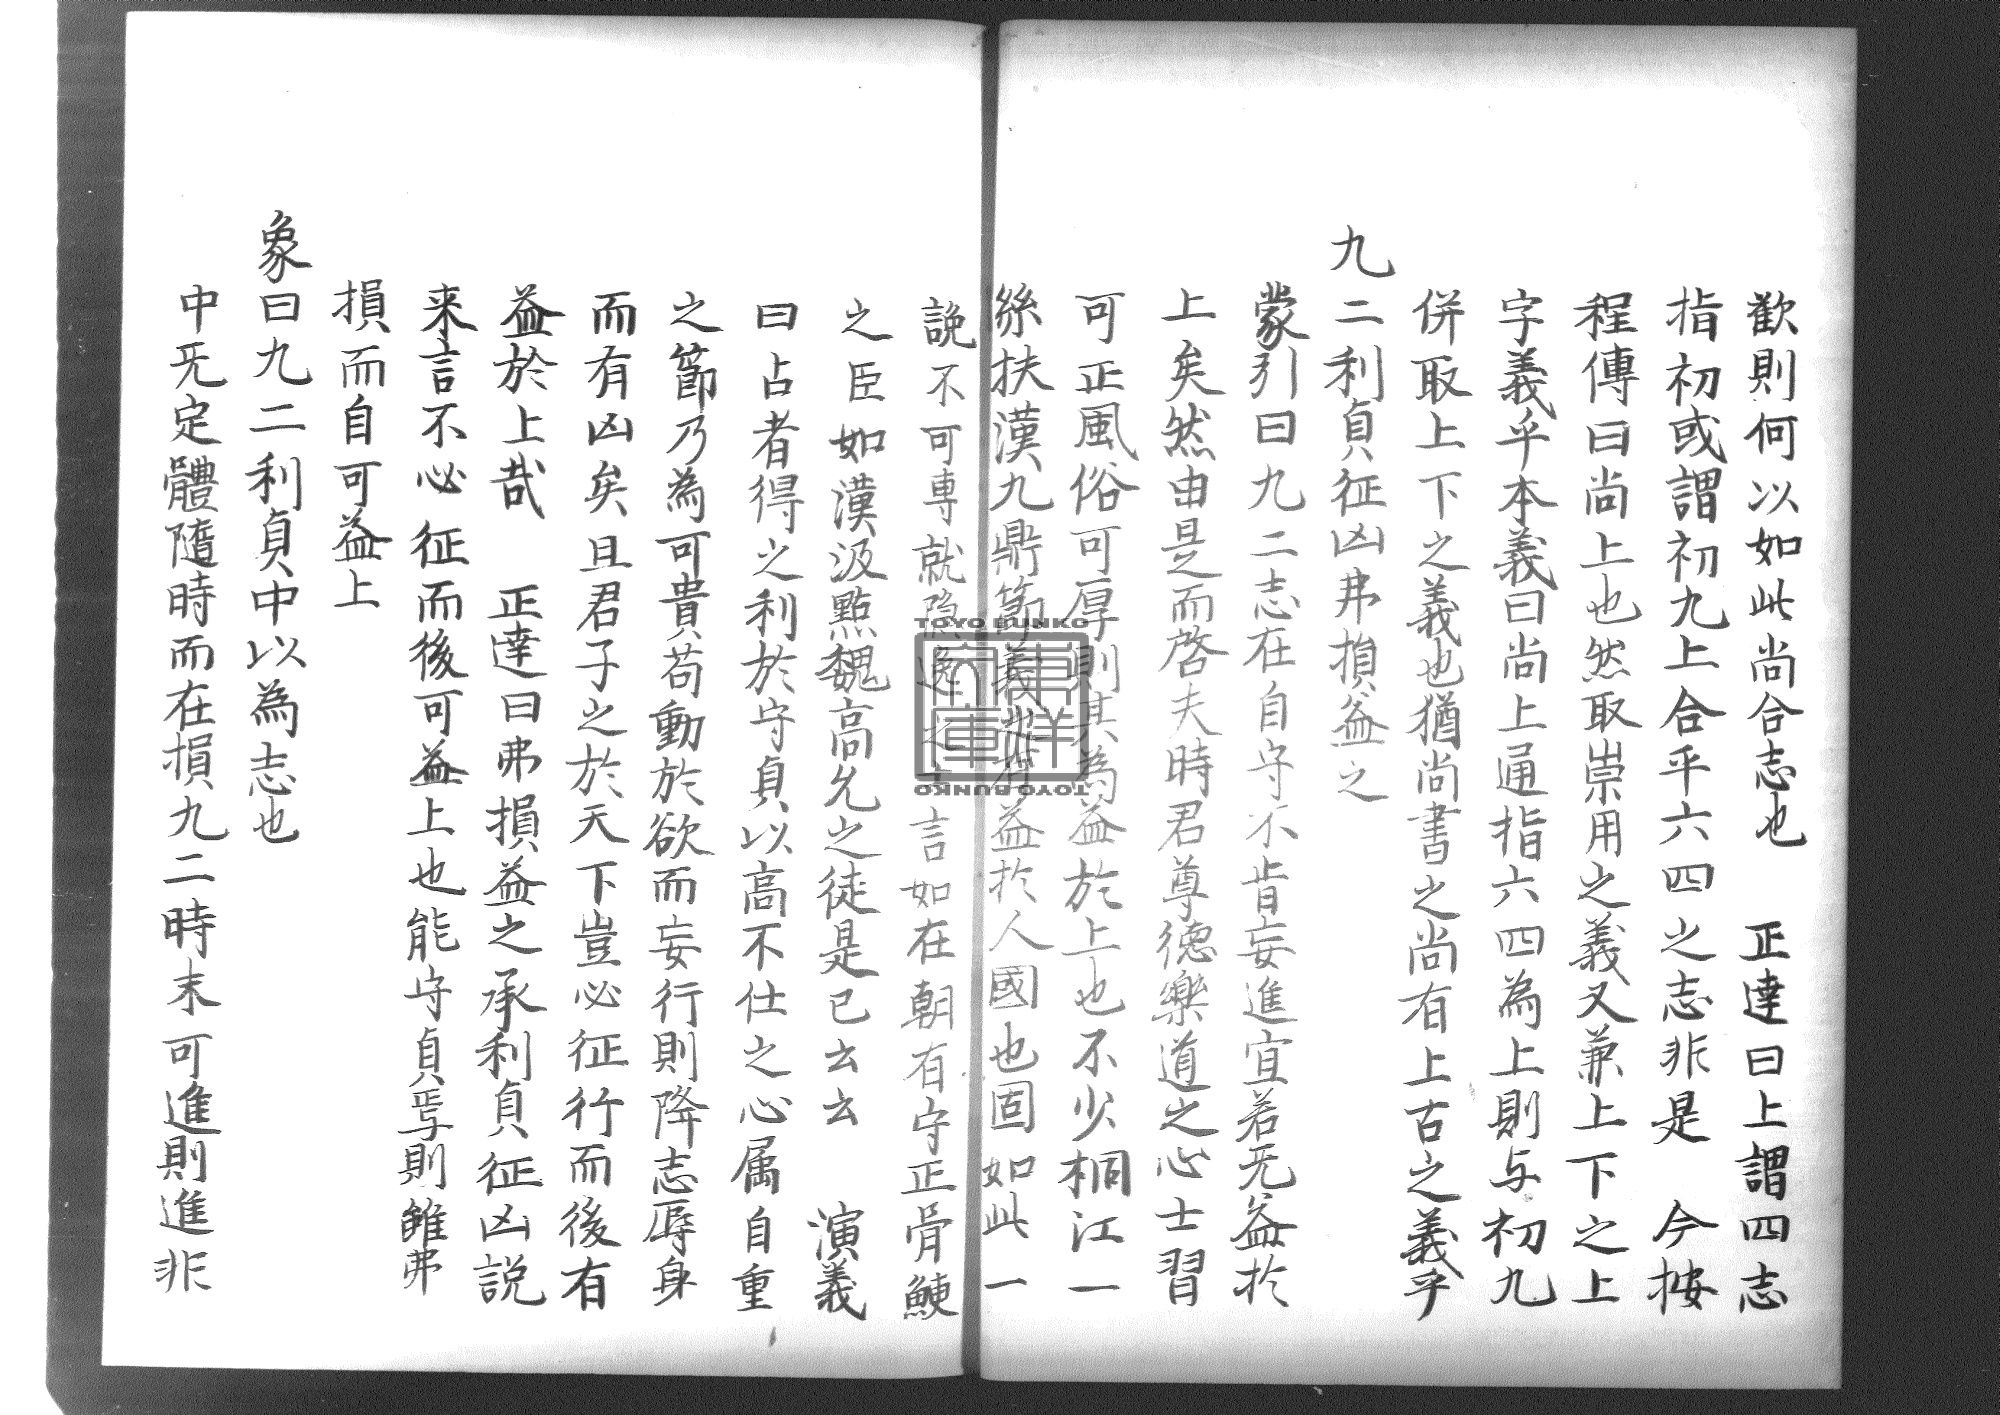 歡則何以如此尚合志也　正達曰上謂四志
指初或謂初九上合乎六四之志非是　今按
程傳曰尚上也然取崇用之義又兼上下之上
字義乎本義曰尚上通指六四為上則与初九
併取上下之義也猶尚書之尚有上古之義乎
九二利貞征凶弗損益之
蒙引曰九二志在自守不肯妄進宜若无益於
上矣然由是而啓夫時君尊德樂道之心士習
可正風俗可厚則其為益於上也不少桐江一
絲扶漢九鼎節義之有益於人國也固如此一
說不可專就隐逸之士言如在朝有守正骨鯁
之臣如漢汲黯魏高允之徒是已云云　演義
曰占者得之利於守貞以高不仕之心属自重
之節乃為可貴苟動於欲而妄行則降志辱身
而有凶矣且君子之於天下豈必征行而後有
益於上哉　正達曰弗損益之承利貞征凶説
来言不必征而後可益上也能守貞焉則雖弗
損而自可益上
象曰九二利貞中以為志也
中无定體隨時而在損九二時末可進則進非